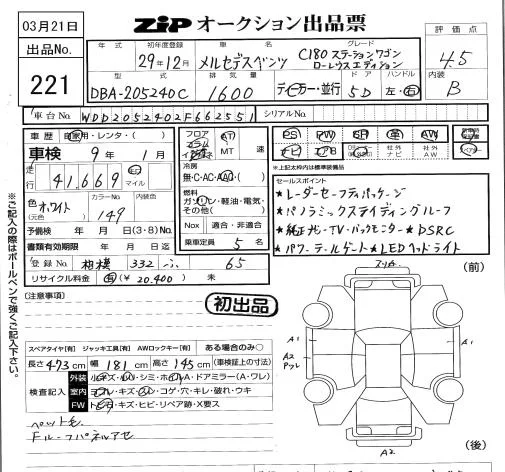 03月21日
ZIP オークション出品票
出品No.
221
年式 初年度登録 車名 グレード
29年12月 メルセデスベンツ C180 ステーションワゴン
ローレウスエディション
型式 排気量 ドア ハンドル
DBA-205240C 1600 ディーラー・並行 5D 左・右
評価点
4.5
内装
B
車台No. WDD2052402F662551 シリアルNo.
車歴 自家用・レンタ・( )
車検 9年 1月
走行 41,669 km マイル
色 ホワイト カラーNo. 149 内装色
(元色)
予備検 年 月 日(3・8)No.
書類有効期限 年 月 日迄
登録No. 相模 332 ふ 65
リサイクル料金 有(¥ 20,400 ) 未
フロア AT
コラム MT 速
インパネ
冷房
無・C・AC・AAC・( )
燃料
ガソリン・軽油・電気・
その他( )
Nox 適合・非適合
乗車定員 5 名
PS PW SR 革 AW
ナビ エアB 社外ナビ 社外AW
※上記太枠内は標準装備品
セールスポイント
★レーダーセーフティパッケージ
★パノラミックスライディングルーフ
★純正ナビ-TV-バックモニター★DSRC
★パワーテールゲート★LEDヘッドライト
※ご記入の際はボールペンで強くご記入下さい。
[注意事項]
初出品
スペアタイヤ[有] ジャッキ工具[有] AWロックキー[有] ある場合のみ○
長さ 473 cm 幅 181 cm 高さ 145 cm (車検証上の寸法)
検査記入 外装 小キズ・凹・シミ・ホイルA・ドアミラー(A・ワレ)
室内 ヨゴレ・キズ・スレ・コゲ・穴・キレ・破れ・ウキ
FW トビ石・キズ・ヒビ・リペア跡・X要ス
ペット毛
Fルーフパネルアセ
スリキレ
(前)
A1
A1
A2
A2
(後)